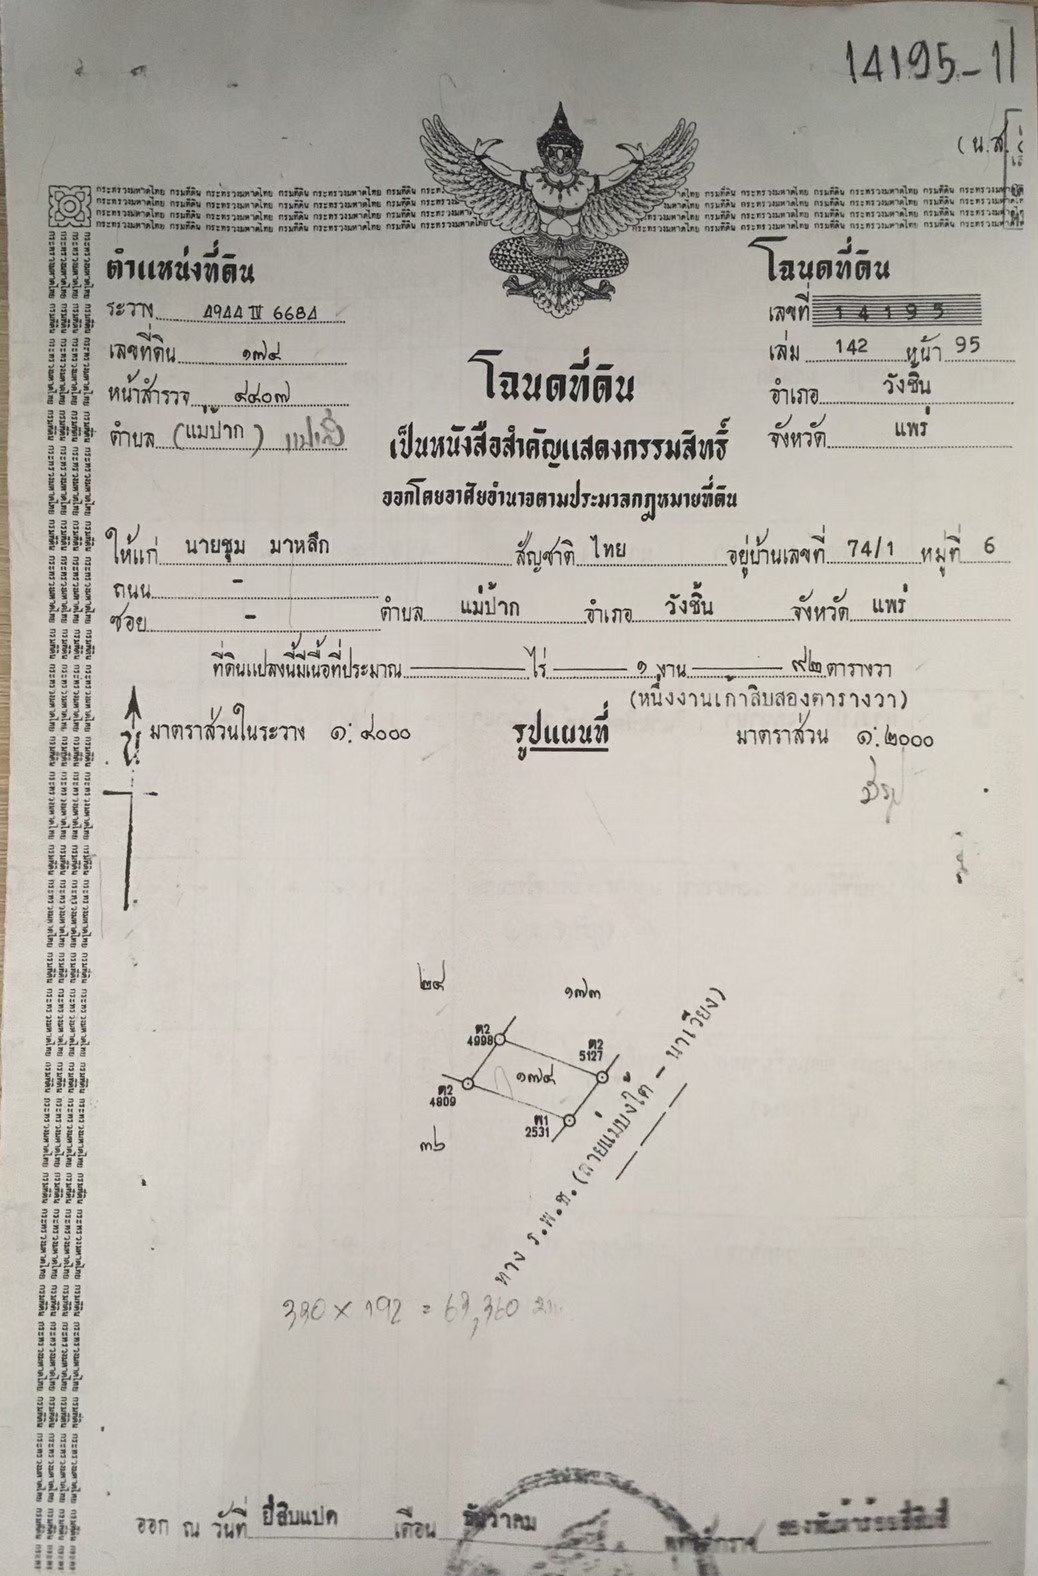 14195-1
(น.ส.
ตำแหน่งที่ดิน
โฉนดที่ดิน
ระวาง 4944 IV 6684
เลขที่ 14195
เลขที่ดิน ๑๗๔
เล่ม 142 หน้า 95
โฉนดที่ดิน
หน้าสำรวจ ๔๔๐๗
อำเภอ วังชิ้น
ตำบล (แม่ป้าก)
จังหวัด แพร่
เป็นหนังสือสำคัญแสดงกรรมสิทธิ์
ออกโดยอาศัยอำนาจตามประมวลกฎหมายที่ดิน
ให้แก่ นายชุม มาหลึก สัญชาติ ไทย อยู่บ้านเลขที่ 74/1 หมู่ที่ 6
ถนน -
ซอย - ตำบล แม่ป้าก อำเภอ วังชิ้น จังหวัด แพร่
ที่ดินแปลงนี้มีเนื้อที่ประมาณ ไร่ ๑ งาน ๙๒ ตารางวา
(หนึ่งงานเก้าสิบสองตารางวา)
น
มาตราส่วนในระวาง ๑:๔๐๐๐ รูปแผนที่ มาตราส่วน ๑:๒๐๐๐
๒๔
๑๗๓
ต2
4998
ต2
5127
๑๗๔
ต2
4809
ท1
2531
๓๖
ทาง ร.พ.ช. (สายแม่บงใต้ - นาเวียง)
330 × 192 = 63,360
ออก ณ วันที่ ยี่สิบแปด เดือน ธันวาคม พุทธศักราช สองพันห้าร้อยสี่สิบสี่